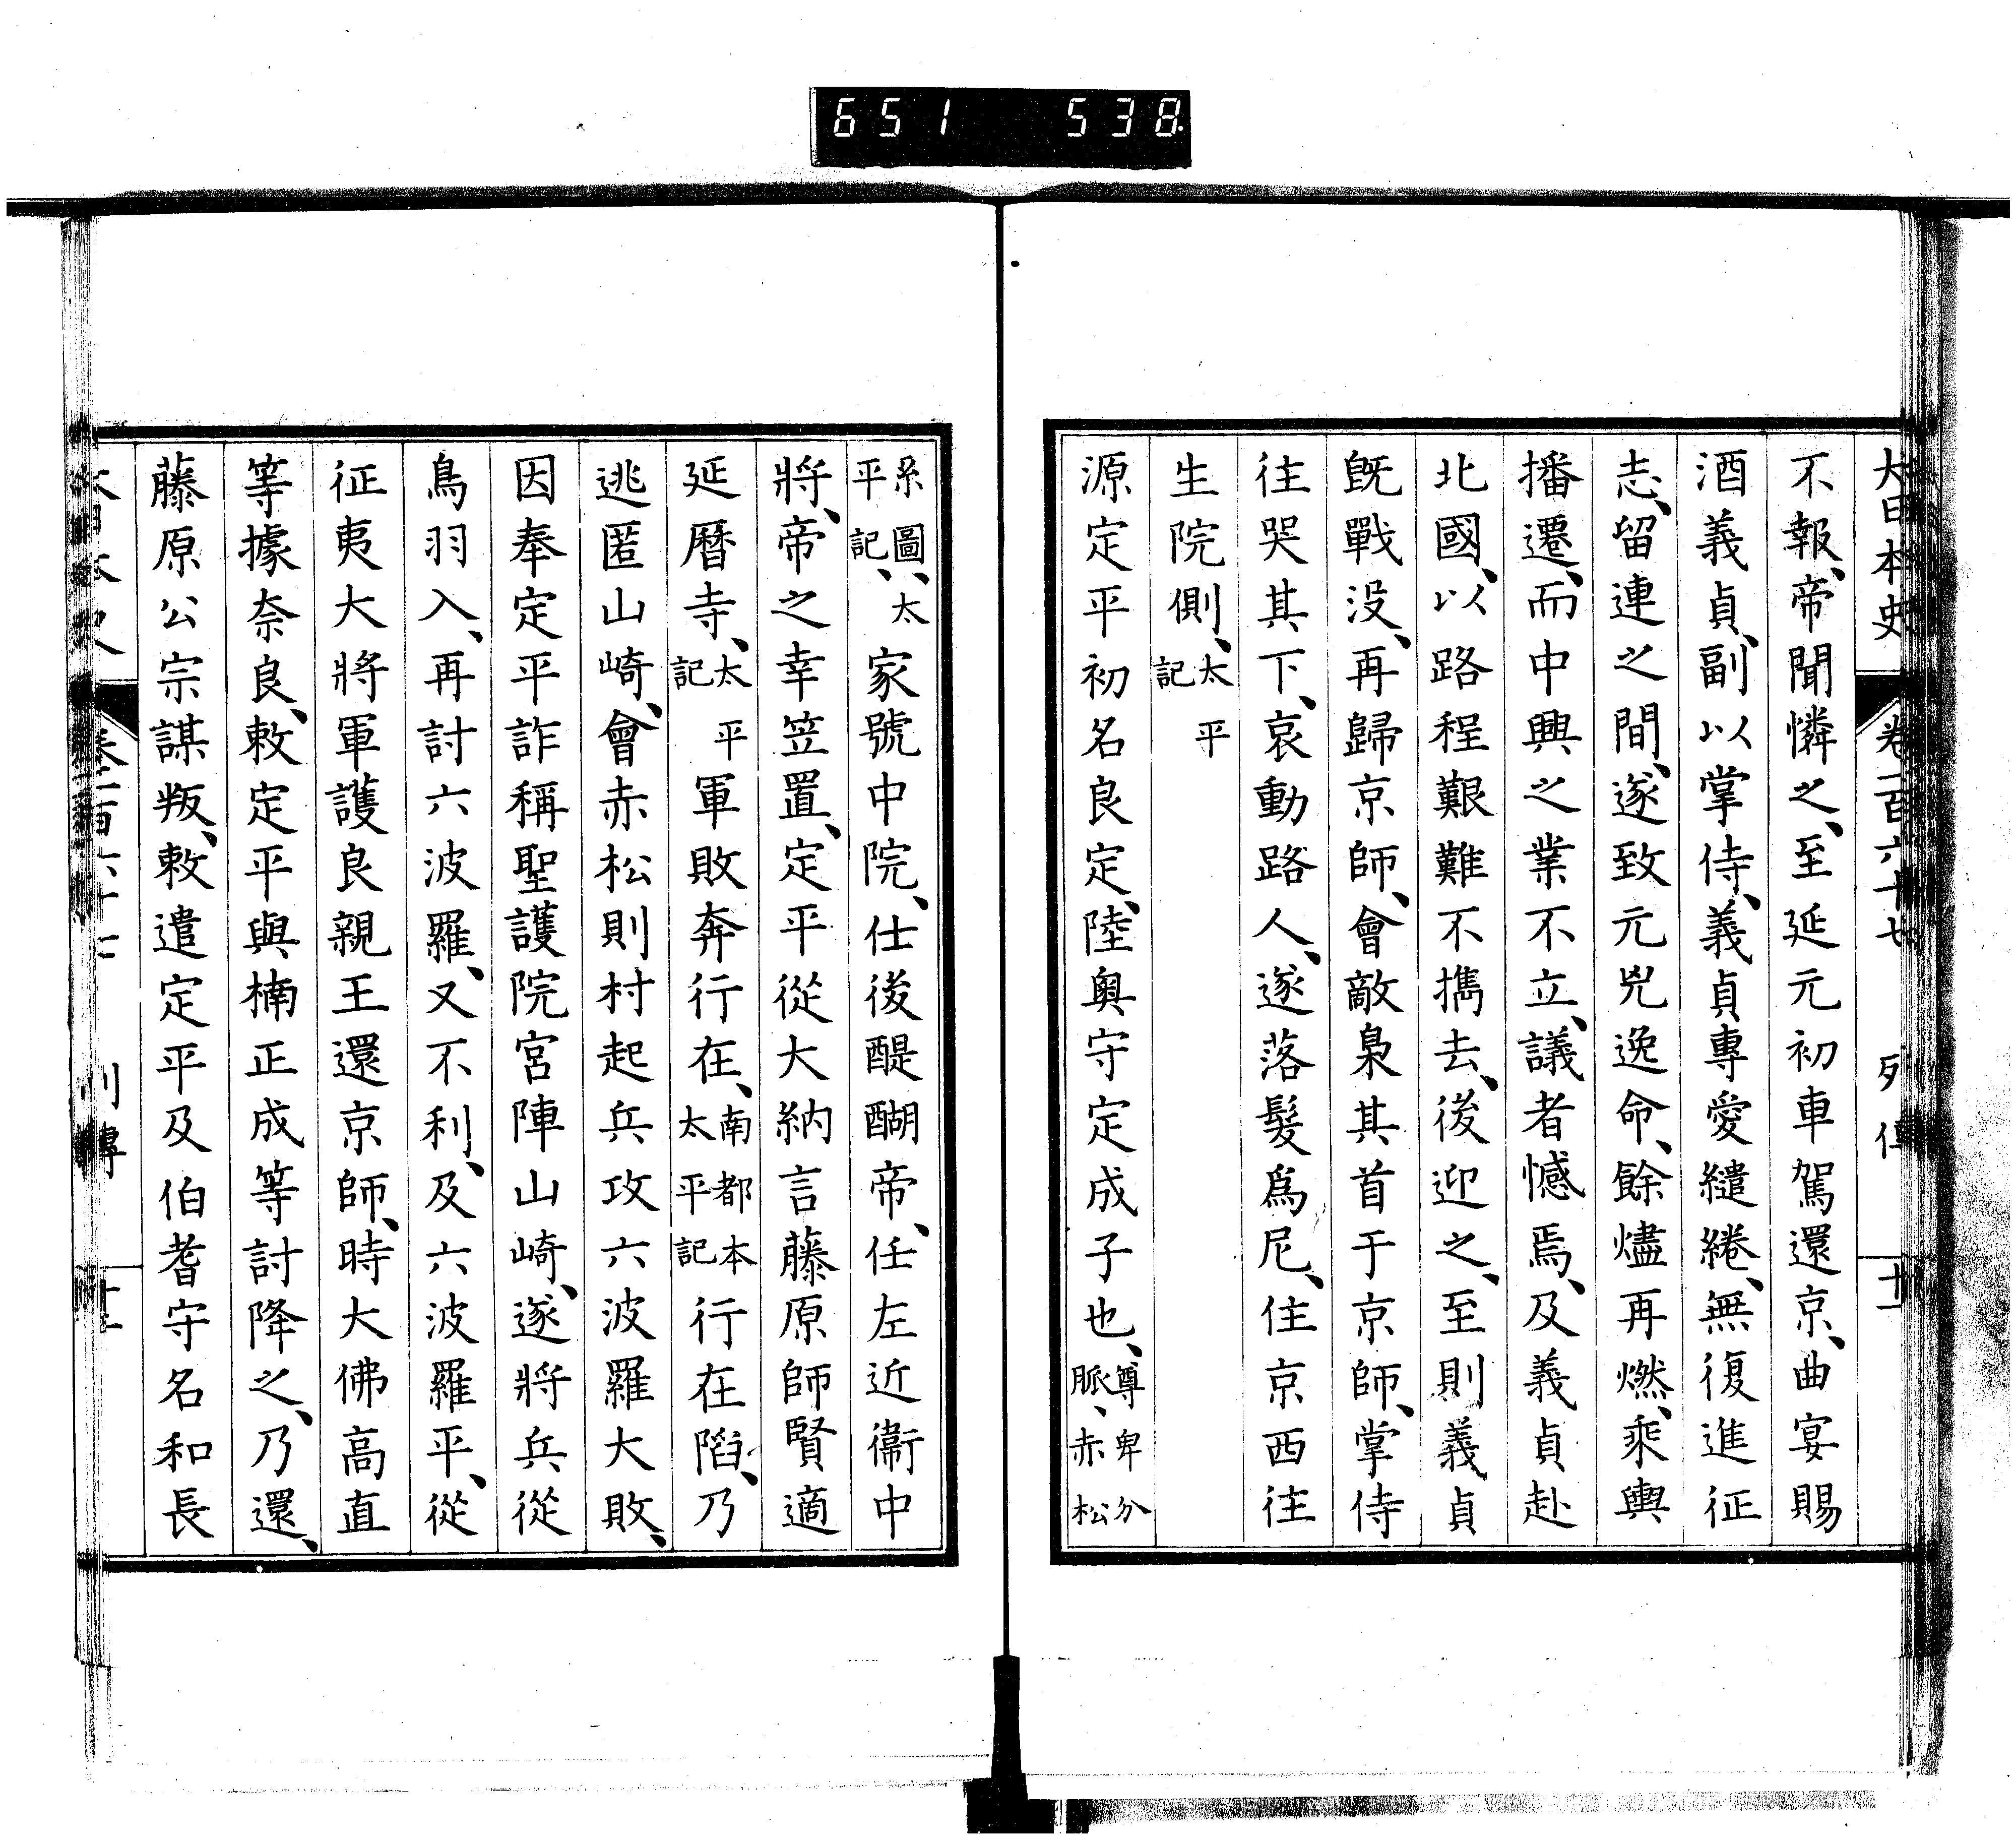 651 538
大日本史 卷一百六十七 列傳 十二
不報、帝聞憐之、至延元初車駕還京、曲宴賜
酒義貞、副以掌侍、義貞專愛繾綣、無復進征
志、留連之間、遂致元兇逸命、餘燼再燃、乘輿
播遷、而中興之業不立、議者憾焉、及義貞赴
北國、以路程艱難不携去、後迎之、至則義貞
旣戰没、再歸京師、會敵梟其首于京師、掌侍
往哭其下、哀動路人、遂落髮爲尼、住京西往
生院側、太平記
源定平初名良定、陸奥守定成子也、尊卑分脈、赤松
系圖、太平記、家號中院、仕後醍醐帝、任左近衞中
將、帝之幸笠置、定平從大納言藤原師賢適
延曆寺、太平記軍敗奔行在、南都本太平記行在陷、乃
逃匿山崎、會赤松則村起兵攻六波羅大敗、
因奉定平詐稱聖護院宮陣山崎、遂將兵從
鳥羽入、再討六波羅、又不利、及六波羅平、從
征夷大將軍護良親王還京師、時大佛高直
等據奈良、敕定平與楠正成等討降之、乃還、
藤原公宗謀叛、敕遣定平及伯耆守名和長